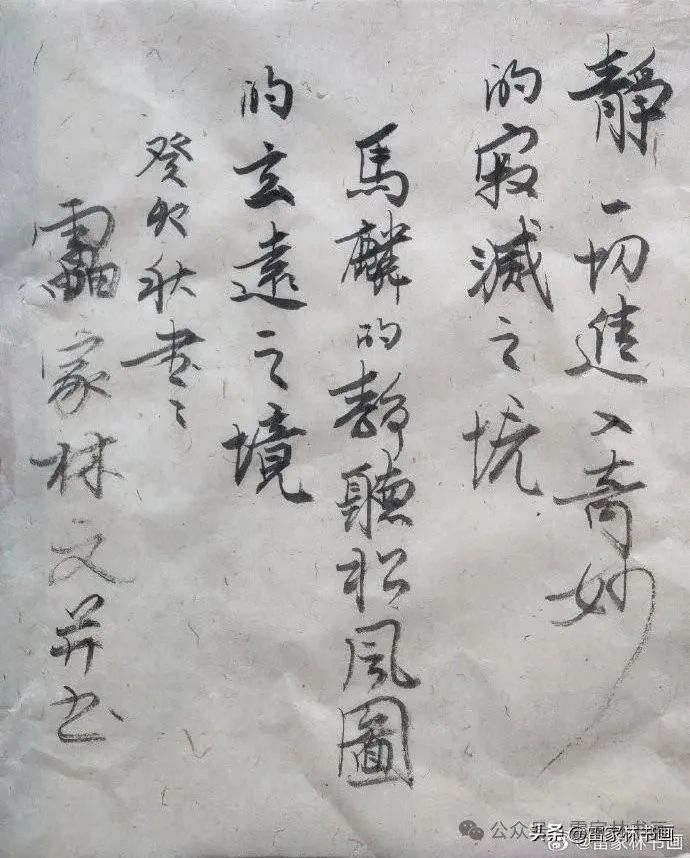 靜一切進入奇妙
的寂滅之境
馬麟的靜聽松風圖
的玄遠之境
癸卯秋書之
雷家林文并书
公众号·雷家林书画
头条@雷家林书画
@雷家林书画